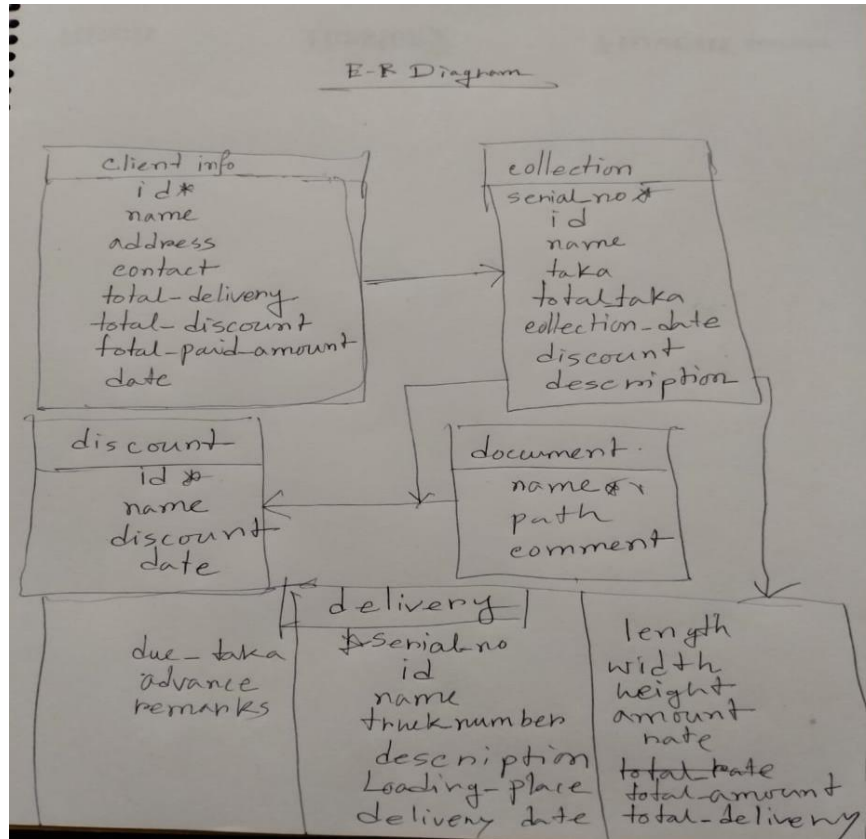 E-R Diagram
client info
id*
name
address
contact
total-delivery
total-discount
total-paid-amount
date
collection
serial_no*
id
name
taka
total_taka
collection-date
discount
description
discount
id*
name
discount
date
document.
name*
path
comment
delivery
due-taka
advance
remarks
*serial-no
id
name
truck number
description
Loading-place
delivery date
length
width
height
amount
rate
total rate
total-amount
total-delivery